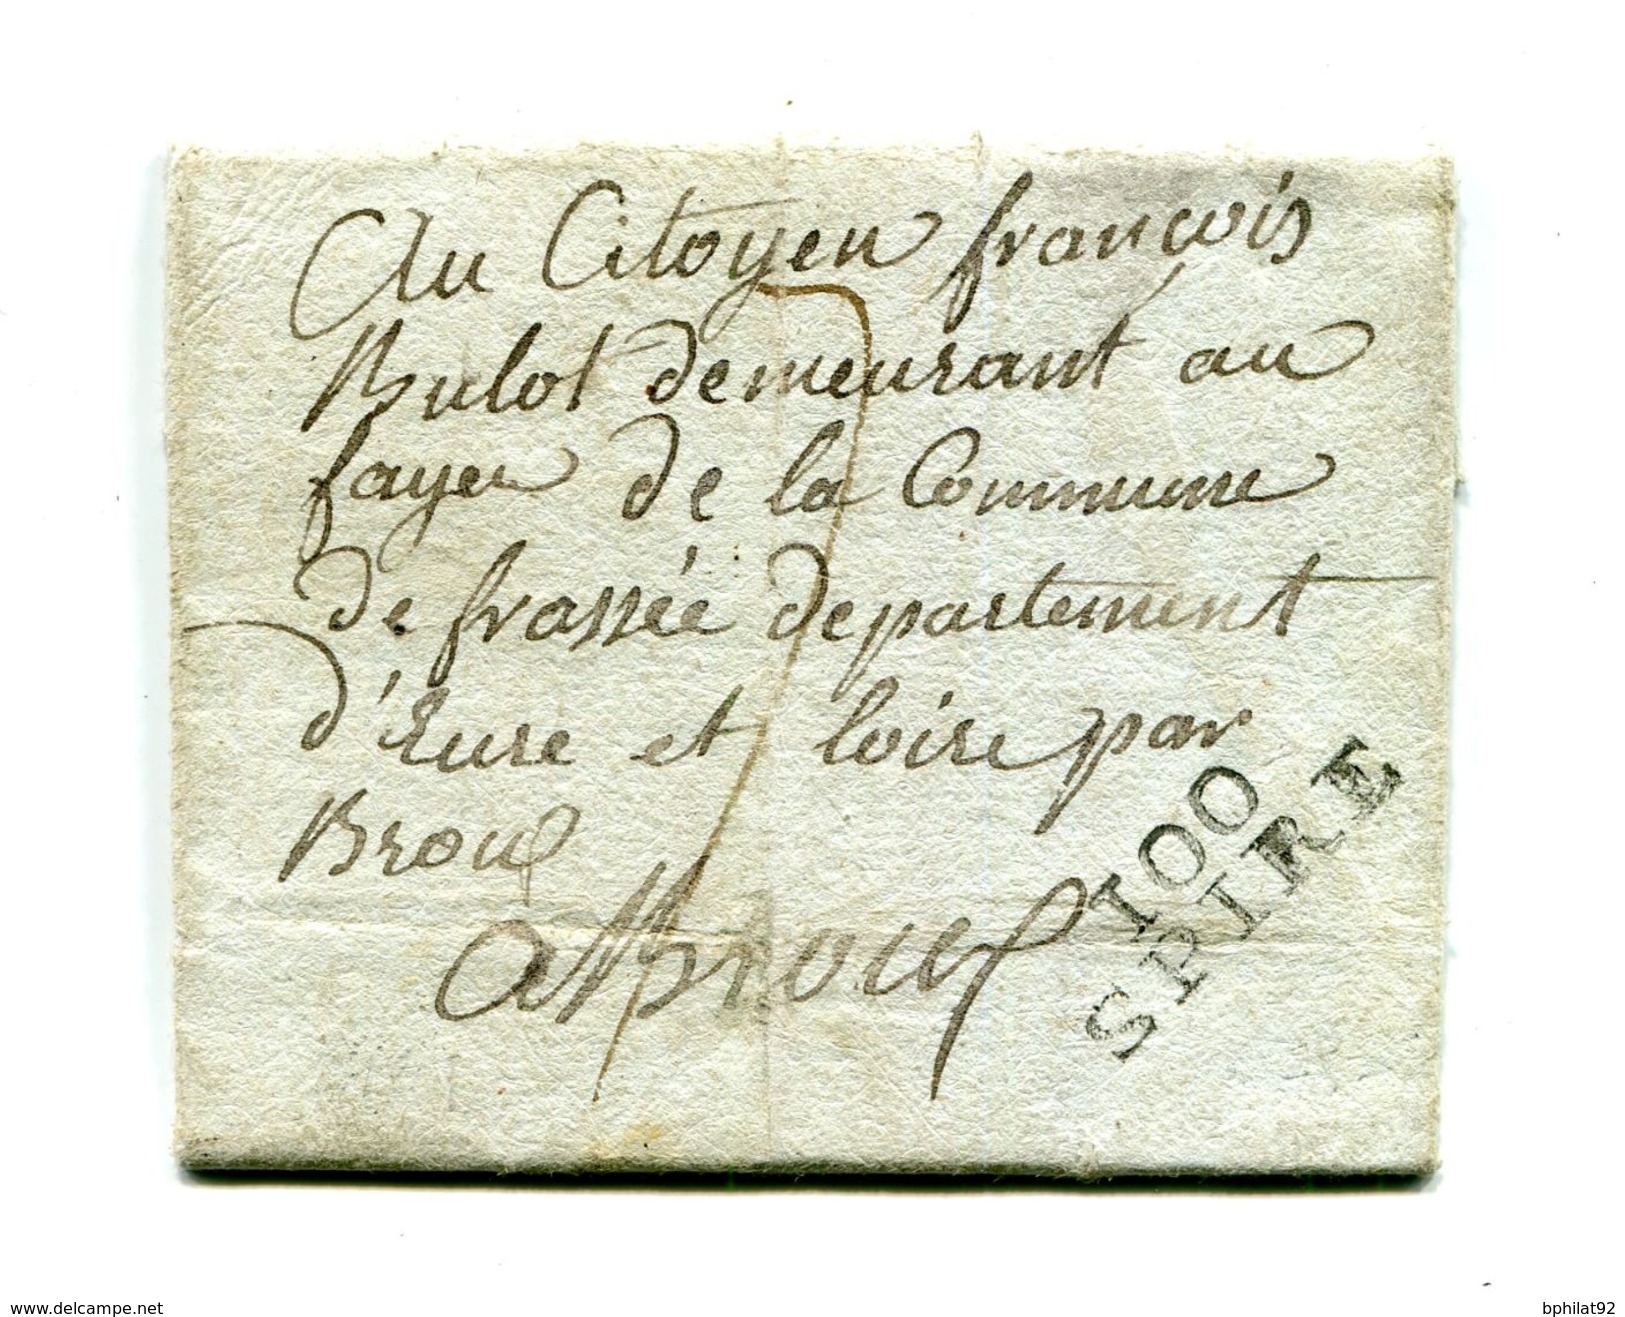 Au Citoyen françois
Bulot demeurant au
fayer de la Commune
de frassée departement
d'Eure et loire par
Brou
a Brou
100
SPIRE
www.delcampe.net
bphilat92